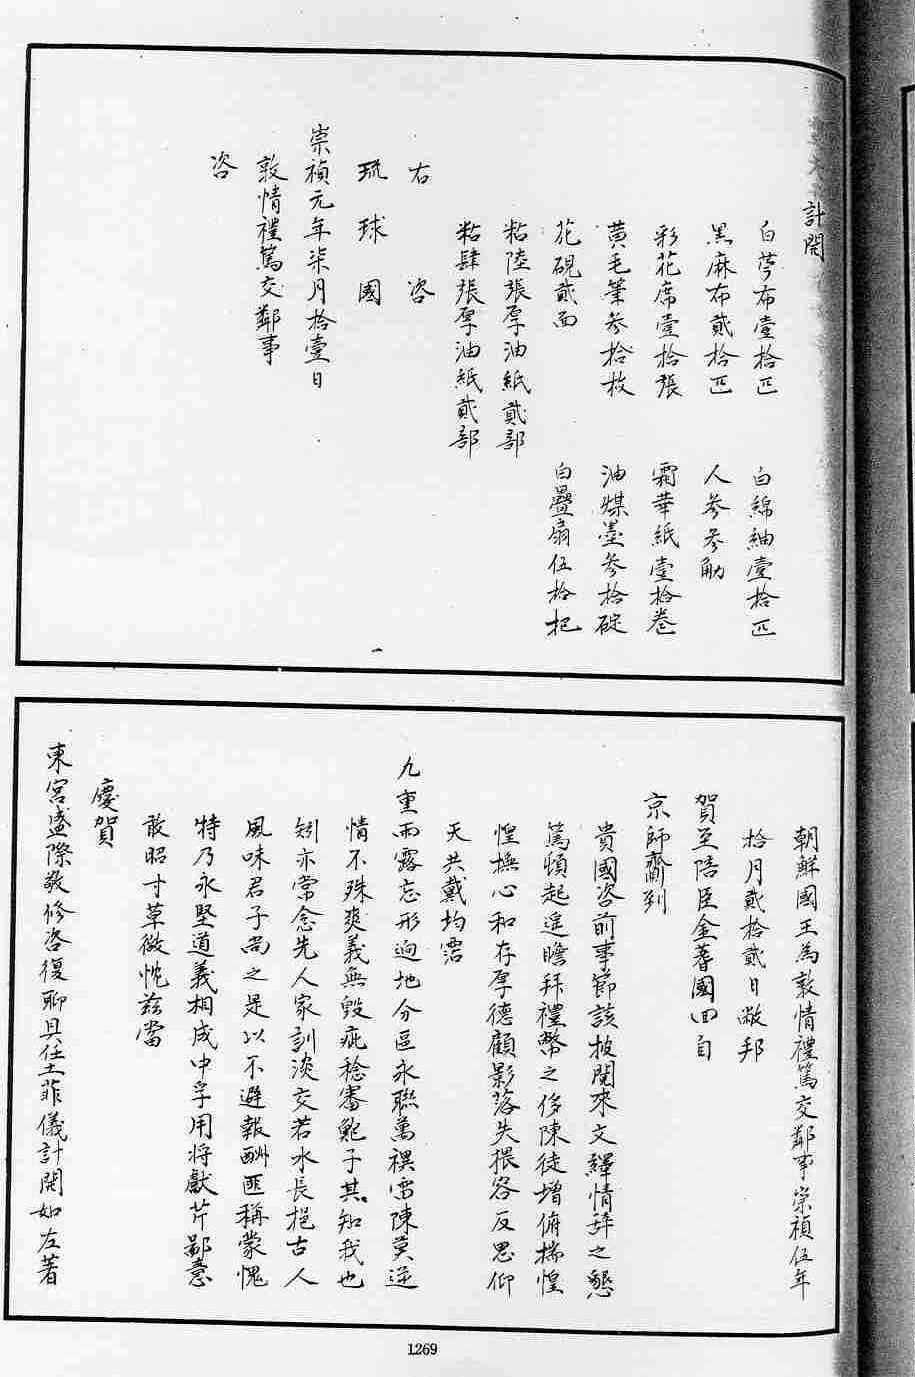 計開
白苧布壹拾匹 白綿紬壹拾匹
黑麻布貳拾匹 人參參觔
彩花席壹拾張 霜華紙壹拾卷
黃毛筆參拾枝 油煤墨參拾碇
花硯貳面 白疊扇伍拾把
粘陸張厚油紙貳部
粘肆張厚油紙貳部
右咨
琉球國
崇禎元年柒月拾壹日
敦情禮篤交鄰事
咨
朝鮮國王為敦情禮篤交鄰事崇禎伍年
拾月貳拾貳日敝邦
賀至陪臣金蓍國回自
京師齎到
貴國咨前事節該披閱來文繹情辞之懇
篤頓起遙瞻拜禮幣之侈陳徒增俯揣惶
惶撫心和存厚德顧影落失捑容反思仰
天共戴均霑
九重雨露忘形迥地分區永聯萬禩雷陳莫逆
情不殊爽義無毀疵稔審鮑子其知我也
矧亦常念先人家訓淡交若水長挹古人
風味君子尚之是以不避報酬匪稱蒙愧
特乃永堅道義相成中孚用將獻芹鄙意
敢昭寸草微忱茲當
慶賀
東宮盛際敬修咨復聊具任土菲儀計開如左著
1269